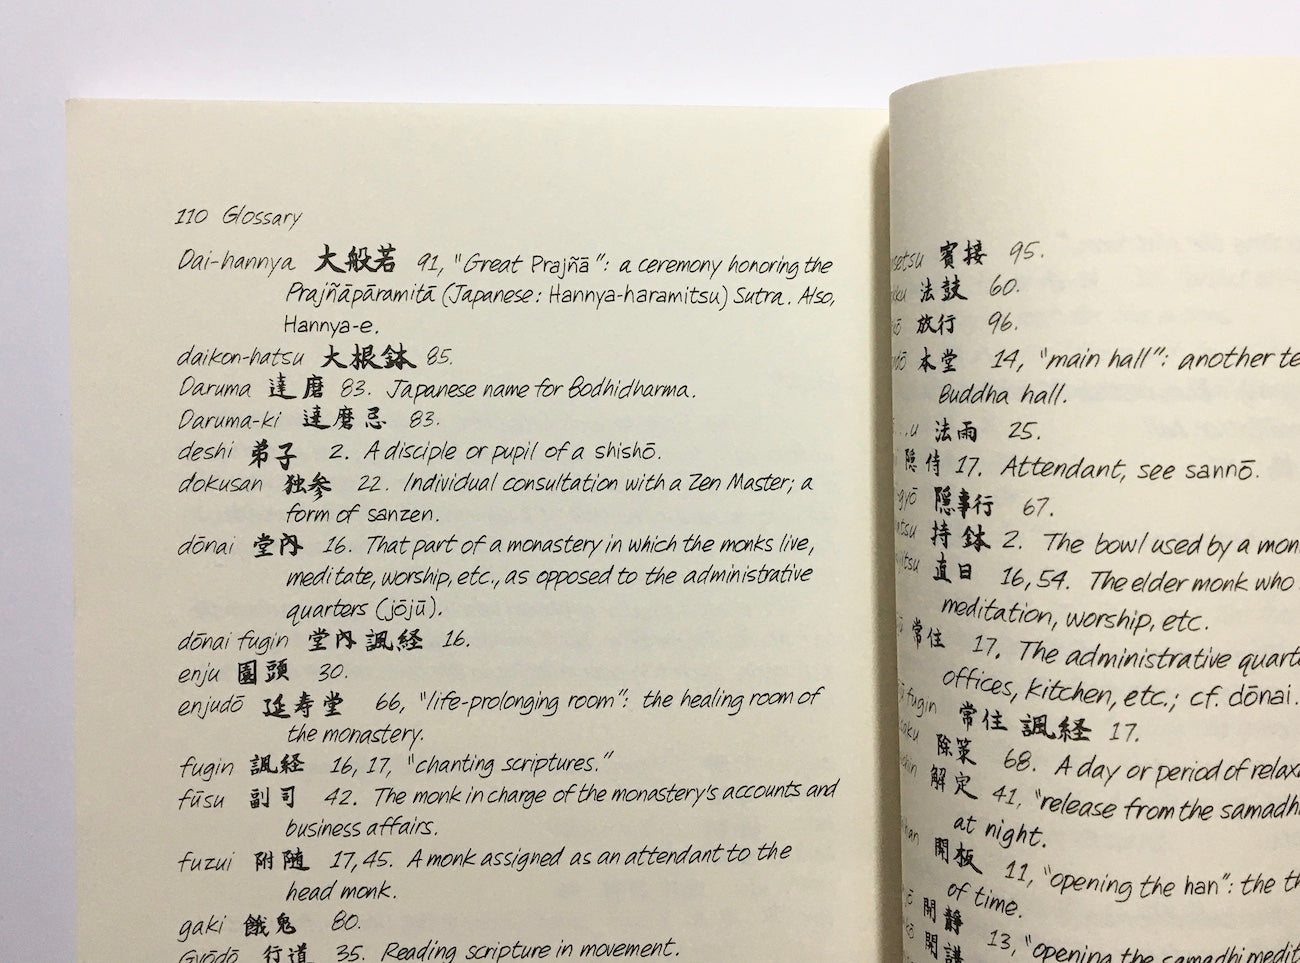 110 Glossary
Dai-hannya 大般若 91, "Great Prajñā": a ceremony honoring the
Prajñāpāramitā (Japanese: Hannya-haramitsu) Sutra. Also,
Hannya-e.
daikon-hatsu 大根鉢 85.
Daruma 達磨 83. Japanese name for Bodhidharma.
Daruma-ki 達磨忌 83.
deshi 弟子 2. A disciple or pupil of a shishō.
dokusan 独参 22. Individual consultation with a Zen Master; a
form of sanzen.
dōnai 堂内 16. That part of a monastery in which the monks live,
meditate, worship, etc., as opposed to the administrative
quarters (jōjū).
dōnai fugin 堂内諷経 16.
enju 園頭 30.
enjudō 延寿堂 66, "life-prolonging room": the healing room of
the monastery.
fugin 諷経 16, 17, "chanting scriptures."
fūsu 副司 42. The monk in charge of the monastery's accounts and
business affairs.
fuzui 附随 17, 45. A monk assigned as an attendant to the
head monk.
gaki 餓鬼 80.
Gyōdō 行道 35. Reading scripture in movement.
賓接 95.
法鼓 60.
放行 96.
本堂 14, "main hall": another
Buddha hall.
法雨 25.
隠侍 17. Attendant, see sannō.
隠事行 67.
持鉢 2. The bowl used by a
直日 16, 54. The elder monk who
meditation, worship, etc.
常住 17. The administrative
offices, kitchen, etc.; cf. dōnai.
fugin 常住諷経 17.
除策 68. A day or period of
解定 41, "release from the
at night.
開板 11, "opening the han": the
of time.
開静
開講 13, "opening the samadhi